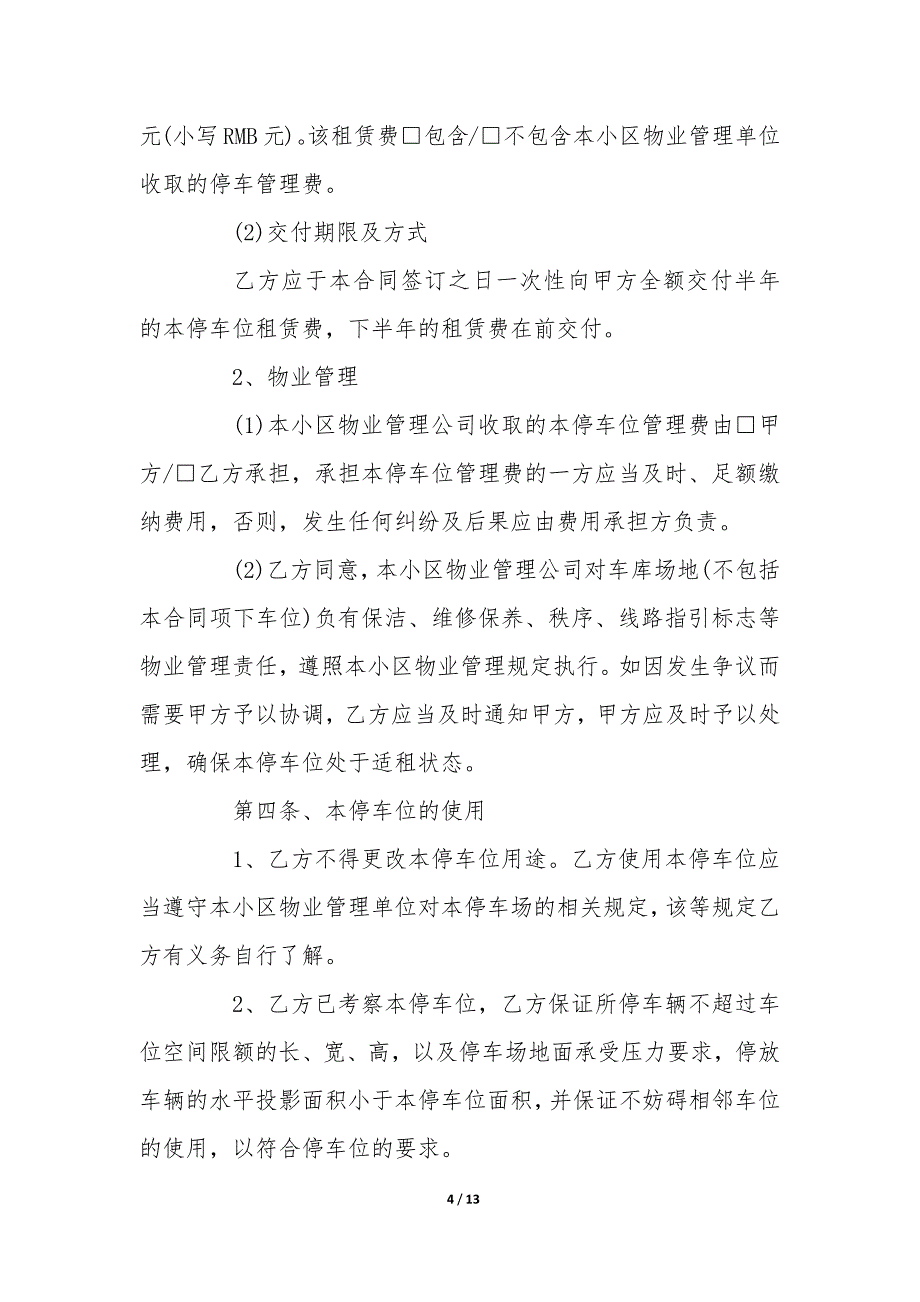 元(小写RMB元)。该租赁费□包含/□不包含本小区物业管理单位
收取的停车管理费。
(2)交付期限及方式
乙方应于本合同签订之日一次性向甲方全额交付半年
的本停车位租赁费，下半年的租赁费在前交付。
2、物业管理
(1)本小区物业管理公司收取的本停车位管理费由□甲
方/□乙方承担，承担本停车位管理费的一方应当及时、足额缴
纳费用，否则，发生任何纠纷及后果应由费用承担方负责。
(2)乙方同意，本小区物业管理公司对车库场地(不包括
本合同项下车位)负有保洁、维修保养、秩序、线路指引标志等
物业管理责任，遵照本小区物业管理规定执行。如因发生争议而
需要甲方予以协调，乙方应当及时通知甲方，甲方应及时予以处
理，确保本停车位处于适租状态。
第四条、本停车位的使用
1、乙方不得更改本停车位用途。乙方使用本停车位应
当遵守本小区物业管理单位对本停车场的相关规定，该等规定乙
方有义务自行了解。
2、乙方已考察本停车位，乙方保证所停车辆不超过车
位空间限额的长、宽、高，以及停车场地面承受压力要求，停放
车辆的水平投影面积小于本停车位面积，并保证不妨碍相邻车位
的使用，以符合停车位的要求。
4 / 13